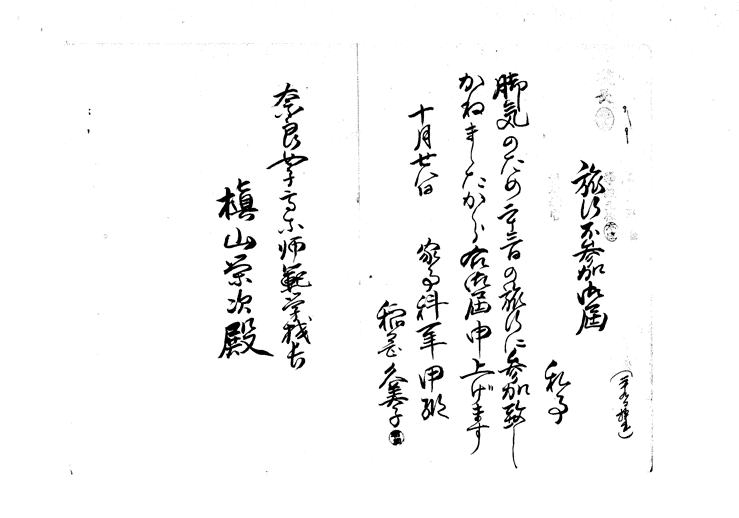 旅行不参加御届
私事
脚気のため二十三日の旅行に参加致し
かねましたから右御届申上げます
十月廿八日
家事科一年甲組
稲葉久美子
奈良女子高等師範学校長
槙山栄次殿